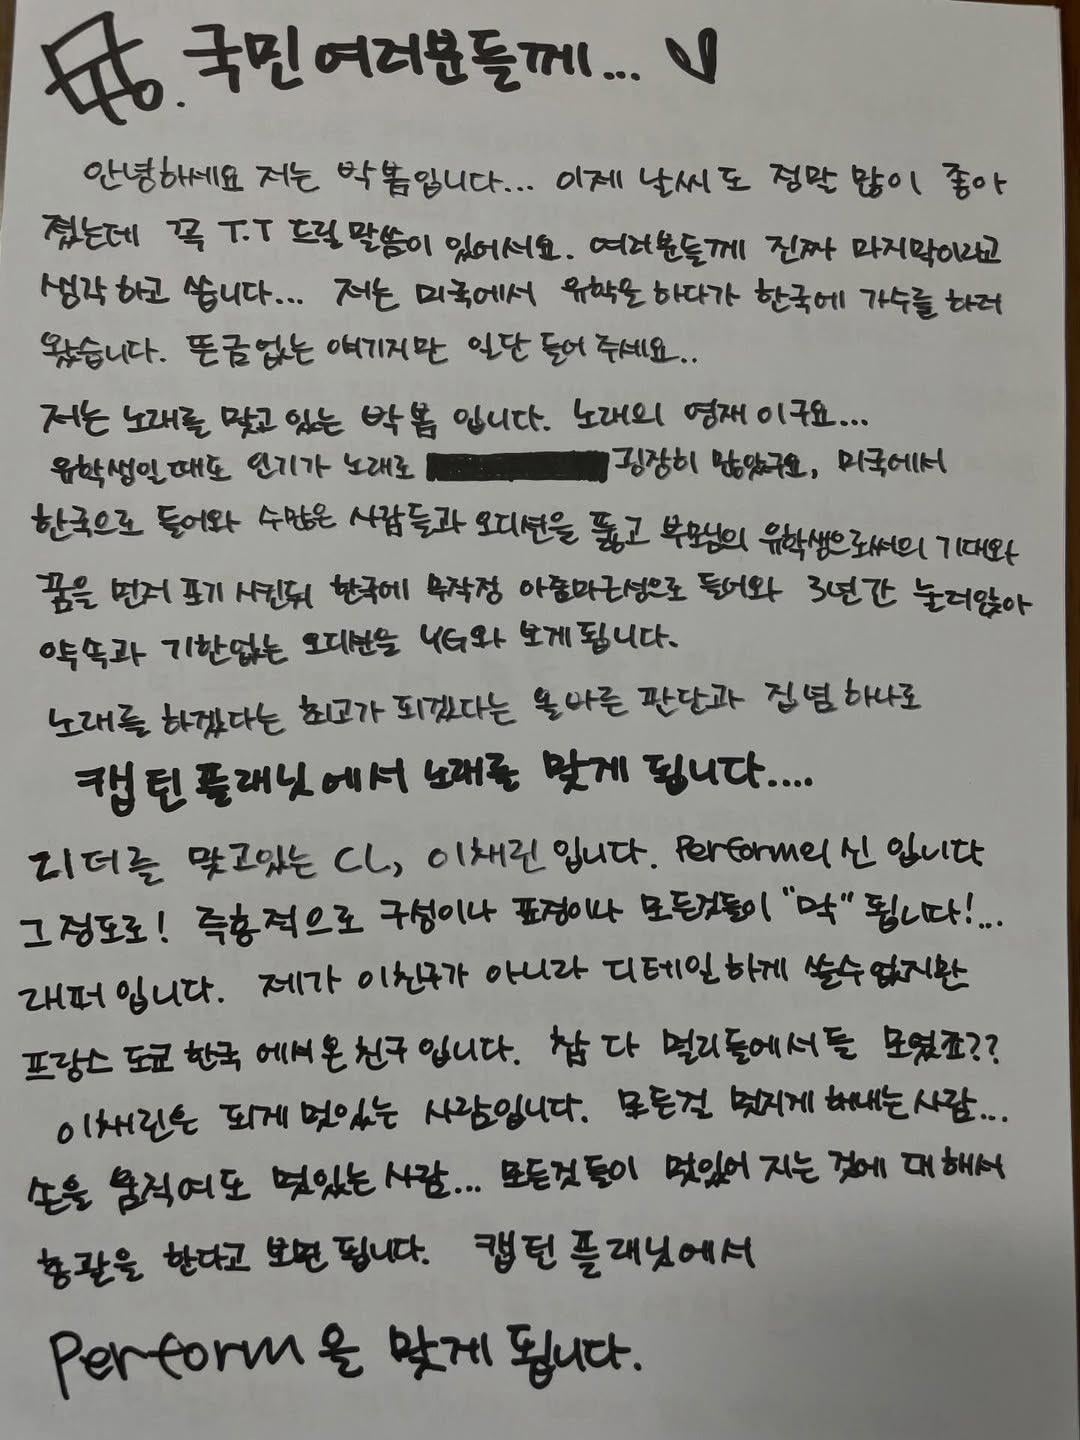 국민여러분들께...
안녕하세요 저는 박봄입니다... 이제 날씨도 정막 많이 좋아
졌는데 꼭 T.T 드릴말씀이 있어서요. 여러분들께 진짜 마지막이라고
생각하고 씁니다... 저는 미국에서 유학을 하다가 한국에 가수를 하러
왔습니다. 뜬금없는 얘기지만 일단 들어주세요..
저는 노래를 맞고 있는 박봄 입니다. 노래의 영재이구요...
유학생일때도 인기가 노래로 굉장히 많았구요, 미국에서
한국으로 들어와 수많은 사람들과 오디션을 뚫고 부모님의 유학생으로써의 기대와
꿈을 먼저 포기 시킨뒤 한국에 무작정 아줌마근성으로 들어와 3년간 눌러앉아
약속과 기한없는 오디션을 YG와 보게됩니다.
노래를 하겠다는 최고가 되겠다는 올바른 판단과 집념 하나로
캡틴플래닛에서 노래를 맞게 됩니다....
리더를 맞고있는 CL, 이채린입니다. Perform의 신 입니다
그정도로! 즉흥적으로 구성이나 표정이나 모든것들이 "막" 됩니다!...
래퍼입니다. 제가 이친구가 아니라 디테일하게 쓸수없지만
프랑스 도쿄 한국 에서온친구입니다. 참 다 멀리들에서들 모였죠??
이채린은 되게멋있는 사람입니다. 모든걸 멋지게 해내는사람...
손을 움직여도 멋있는사람... 모든것들이 멋있어 지는것에 대해서
총괄을 한다고 보면 됩니다. 캡틴플래닛에서
Perform을 맞게됩니다.